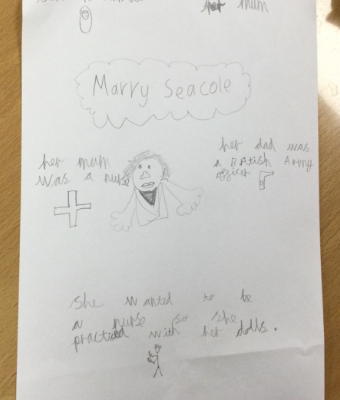 her mum
Marry Seacole
her mum
was a nurse
her dad was
a British Army
officer
she wanted to be
a nurse so she
practied with her dolls.